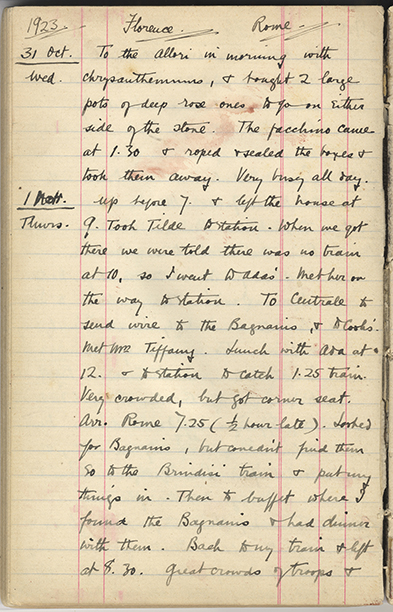 1923. Florence. Rome.
31 Oct. To the Allori in morning with
Wed. chrysanthemums, & bought 2 large
pots of deep rose ones to go on either
side of the stone. The facchino came
at 1.30 & roped & sealed the boxes &
took them away. Very busy all day.
1 Nov. up before 7. & left the house at
Thurs. 9. Took Tilde to station. When we got
there we were told there was no train
at 10, so I went to Ada's. Met her on
the way to station. To Centrale to
send wire to the Bagnanis, & to Cook's.
Met Mrs Tiffany. Lunch with Ada at
12. & to station to catch 1.25 train.
Very crowded, but got corner seat.
Arr. Rome 7.25 (½ hour late). Looked
for Bagnanis, but couldn't find them
so to the Brindisi train & put my
things in. Then to buffet where I
found the Bagnanis & had dinner
with them. Back to my train & left
at 8.30. Great crowds of troops &